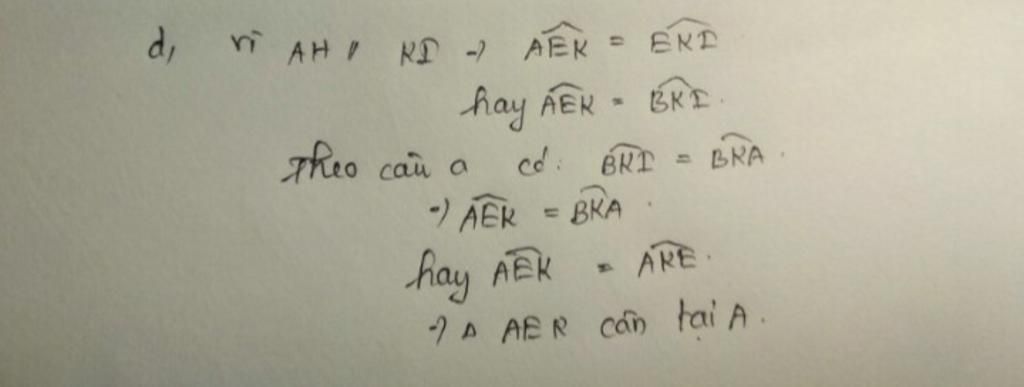 d, vì AH // KI → \widehat{AEK} = \widehat{EKI}
hay \widehat{AEK} = \widehat{BKI}.
Theo câu a có: \widehat{BKI} = \widehat{BKA}.
→ \widehat{AEK} = \widehat{BKA}.
hay \widehat{AEK} = \widehat{AKE}.
→ Δ AEK cân tại A.